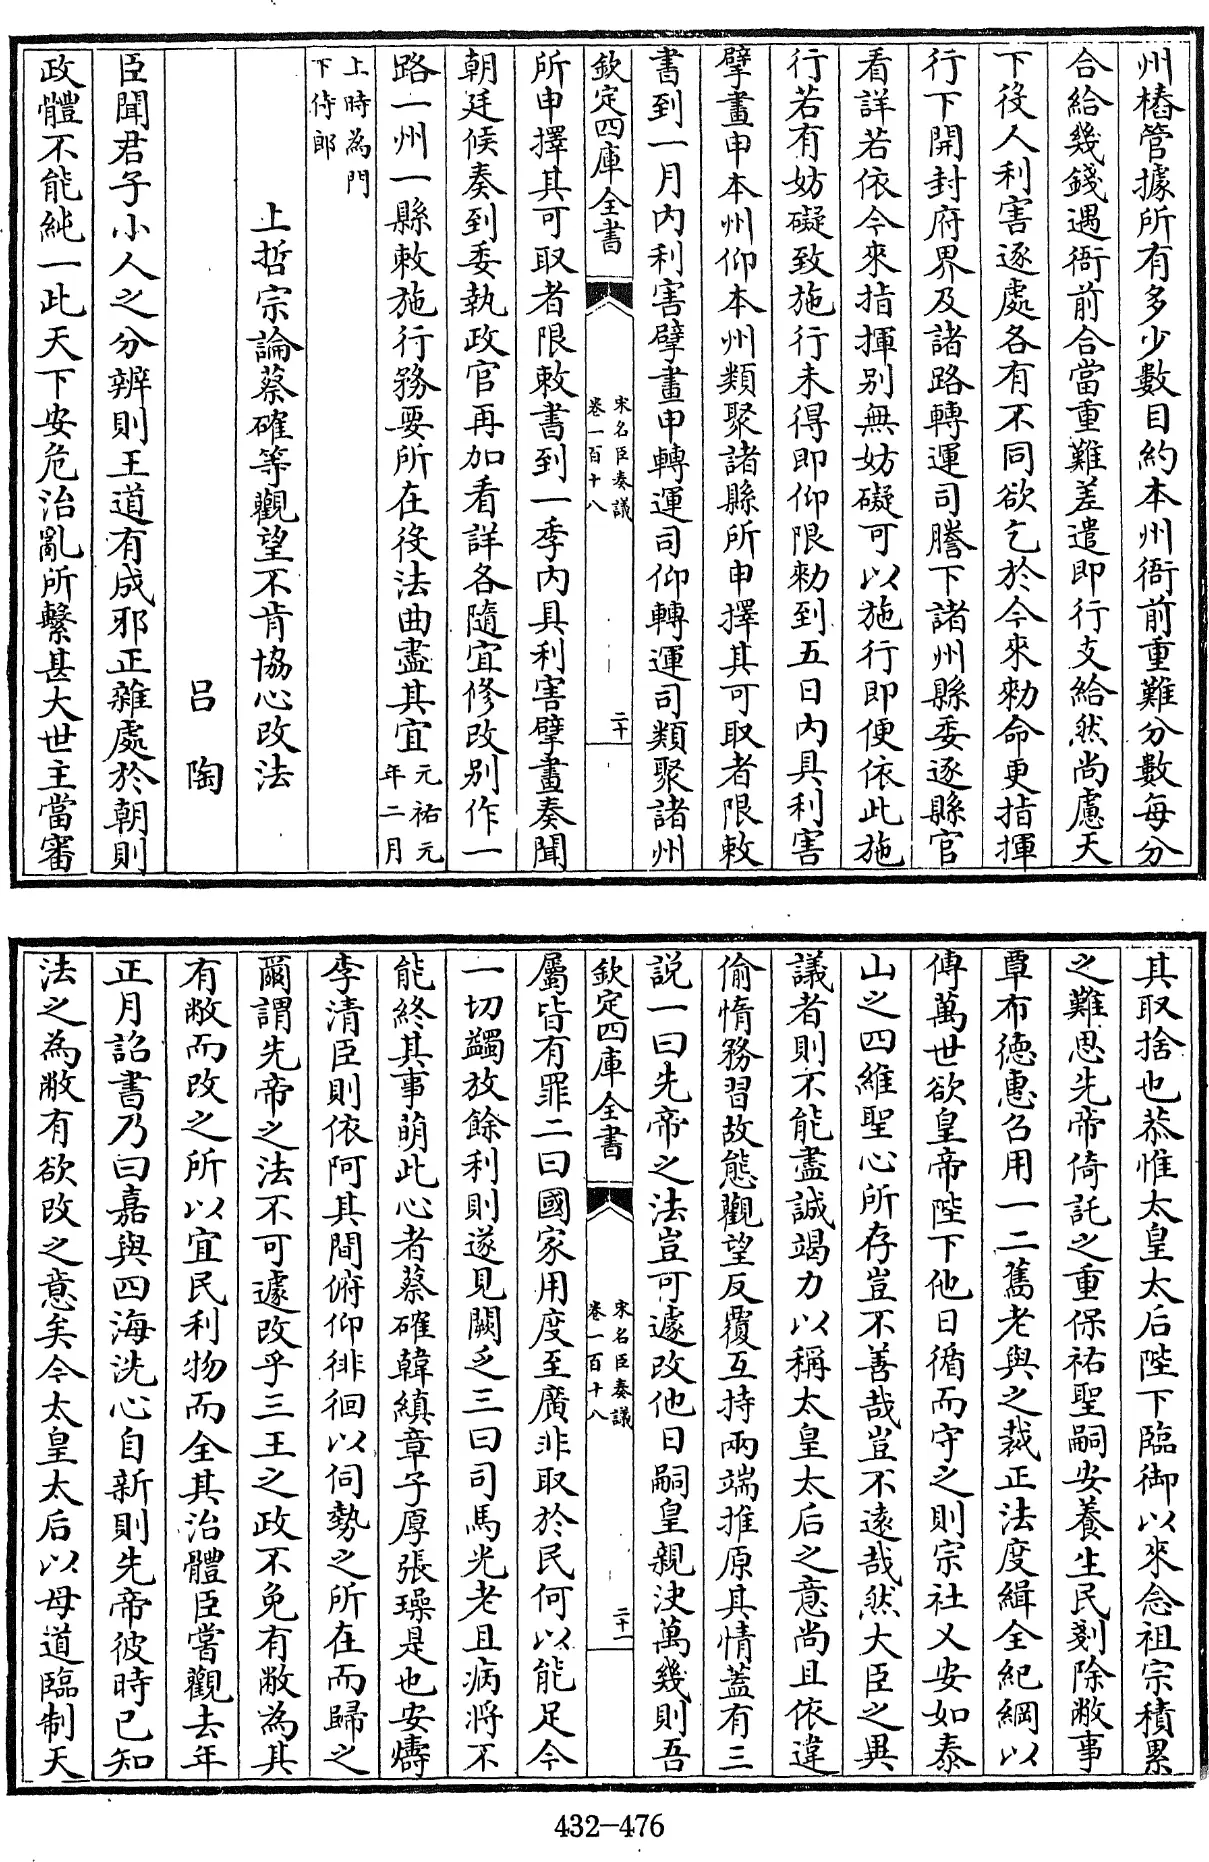 州樁管據所有多少數目約本州衙前重難分數每分
合給幾錢遇衙前合當重難差遣即行支給然尚慮天
下役人利害逐處各有不同欲乞於今來勑命更指揮
行下開封府界及諸路轉運司謄下諸州縣委逐縣官
看詳若依今來指揮别無妨礙可以施行即便依此施
行若有妨礙致施行未得即仰限勑到五日内具利害
擘畫申本州仰本州類聚諸縣所申擇其可取者限敕
書到一月内利害擘畫申轉運司仰轉運司類聚諸州
欽定四庫全書
宋名臣奏議
卷一百十八
二十
所申擇其可取者限敕書到一季内具利害擘畫奏聞
朝廷候奏到委執政官再加看詳各隨宜修改别作一
路一州一縣敕施行務要所在役法曲盡其宜元祐元
年二月
上時為門
下侍郎
上哲宗論蔡確等觀望不肯協心改法
吕陶
臣聞君子小人之分辨則王道有成邪正雜處於朝則
政體不能純一此天下安危治亂所繫甚大世主當審
其取捨也恭惟太皇太后陛下臨御以來念祖宗積累
之難思先帝倚託之重保祐聖嗣安養生民剗除敝事
覃布德惠召用一二舊老與之裁正法度緝全紀綱以
傳萬世欲皇帝陛下他日循而守之則宗社乂安如泰
山之四維聖心所存豈不善哉豈不遠哉然大臣之異
議者則不能盡誠竭力以稱太皇太后之意尚且依違
偷惰務習故態觀望反覆互持兩端推原其情蓋有三
説一曰先帝之法豈可遽改他日嗣皇親決萬幾則吾
欽定四庫全書
宋名臣奏議
卷一百十八
二十一
屬皆有罪二曰國家用度至廣非取於民何以能足今
一切蠲放餘利則遂見闕乏三曰司馬光老且病將不
能終其事萌此心者蔡確韓縝章子厚張璪是也安燾
李清臣則依阿其間俯仰徘徊以伺勢之所在而歸之
爾謂先帝之法不可遽改乎三王之政不免有敝為其
有敝而改之所以宜民利物而全其治體臣嘗觀去年
正月詔書乃曰嘉與四海洗心自新則先帝彼時已知
法之為敝有欲改之意矣今太皇太后以母道臨制天
432-476